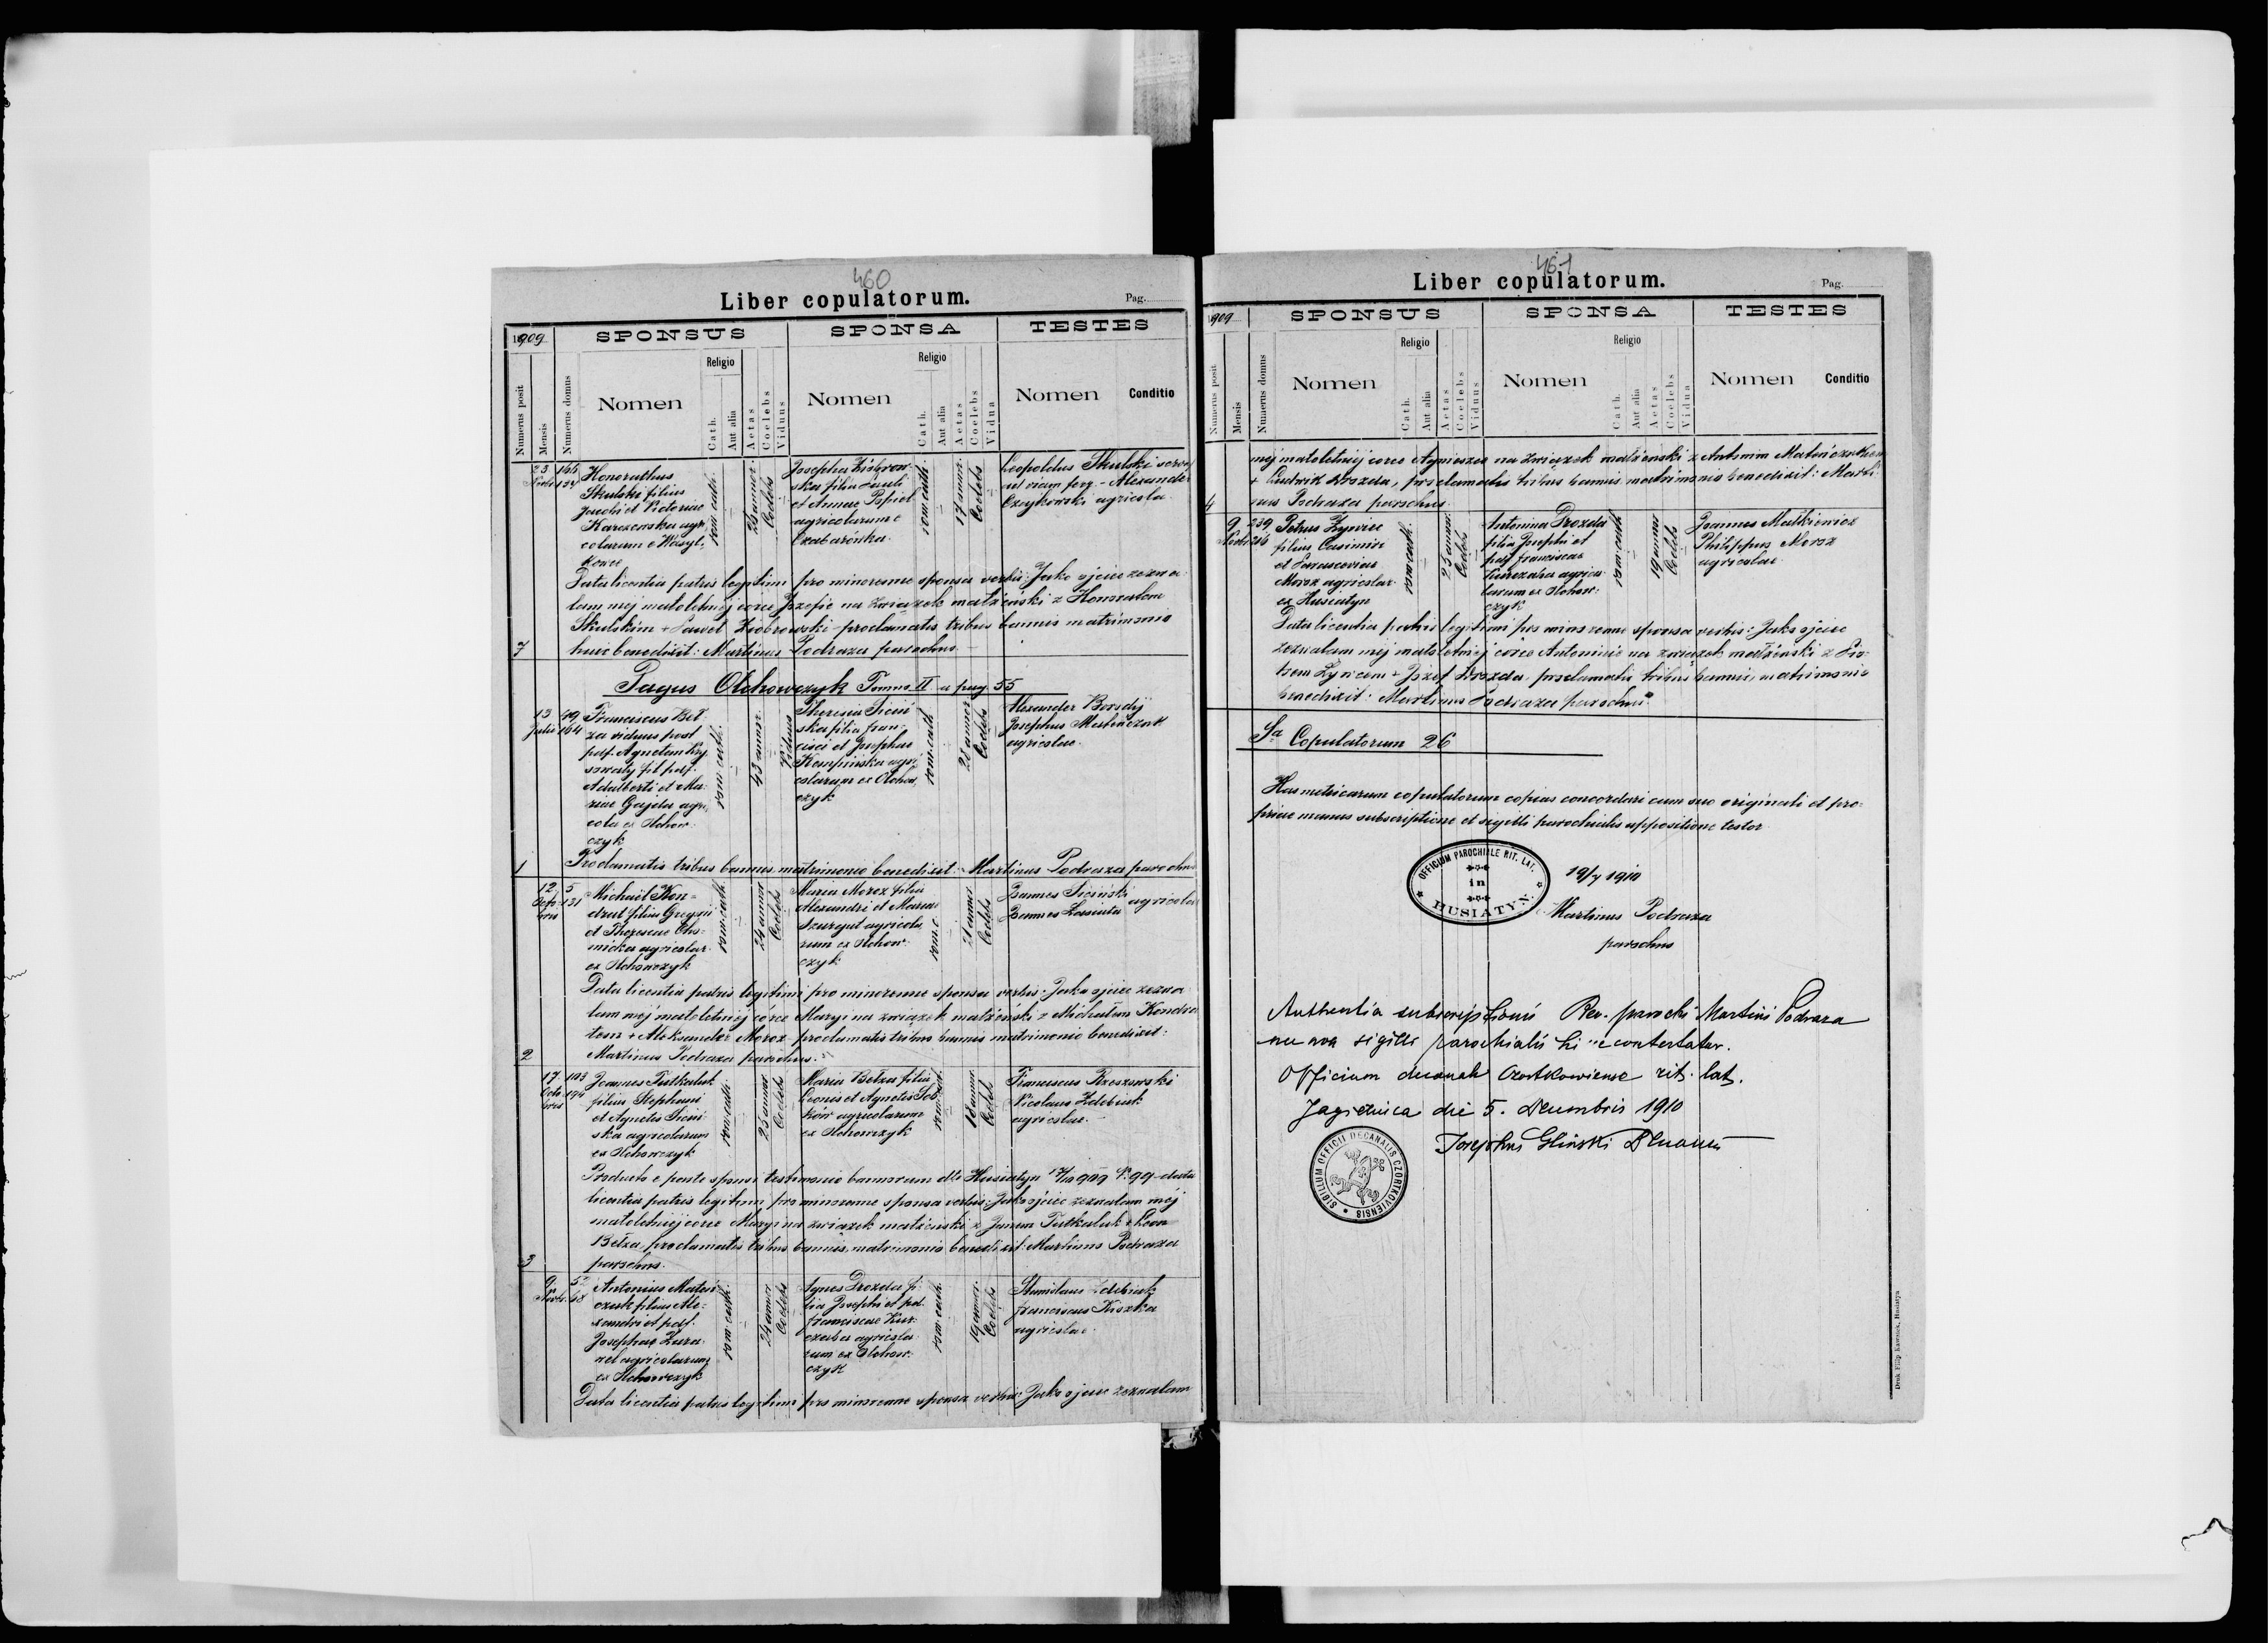 460
Liber copulatorum.
Pag.
1909
SPONSUS
SPONSA
TESTES
Numerus posit
Mensis
Numerus domus
Nomen
Religio
Cath.
Aut alia
Aetas
Coelebs
Viduus
Nomen
Religio
Cath.
Aut alia
Aetas
Coelebs
Vidua
Nomen
Conditio
7
23
Honorathus
Skulski filius
et Victoriae
Karczewska agri
colarum e Wasyl
kowce
rom. cath.
Coelebs
Josepha Ziobrow
ska filia Pauli
et Annae Popiel
agricolarum e
Czabarówka
rom. cath.
17 annor.
Coelebs
Leopoldus Skulski
Alexander
Czyykowski agricola
Data licentia patris legitimi pro minorenne sponsa verbis: Jako ojciec zezwa
lam mej małoletniej córce Józefie na związek małżeński z Honoratem
Skulskim + Paweł Ziobrowski proclamatis tribus bannis matrimonio
huic benedixit: Martinus Podraza parochus.
Pagus Olchowczyk Tomus II a pag. 55
1
13
Julii
49
164
Franciscus Beł
za viduus post
pdf. Agnetem
fil pdf.
Adalberti et Ma
riae Gajda agri
cola ex Olchow
czyk
rom. cath.
43 annor.
Viduus
Theresia Siciń
ska filia Fran
cisci et Josephae
Kempinska agri
colarum ex Olchow
czyk
rom. cath
21 annor
Coelebs
Alexander
Josephus
agricolae.
Proclamatis tribus bannis matrimonio benedixit: Martinus Podraza parochus
2
12
Octo
bris
5
131
Michaël Kon=
drat filius Gregorii
et Theresiae
agricolar.
ex Olchowczyk
rom. cath.
24 annor
Coelebs
Maria Moroz filia
Alexandri et Mariae
agricola
rum ex Olchow
czyk
rom. c.
21 annor
Coelebs
Joannes Siciński
Joannes
agricolae
Data licentia patris legitimi pro minorenne sponsa verbis: Jako ojciec zezwa
lam mej małoletniej córce Maryi na związek małżeński z Michałem Kondra
tem + Aleksander Moroz proclamatis tribus bannis matrimonio benedixit:
Martinus Podraza parochus.
3
17
Octo
bris
193
194
Joannes Tutkaluk
filius Stephani
et Agnetis Siciń
ska agricolarum
ex Olchowczyk
rom. cath.
25 annor
Coelebs
Maria Bełza filia
Leonis et Agnetis
ków agricolarum
ex Olchowczyk
18 annor
Coelebs
Franciscus Rzeszowski
Nicolaus Zdebiak
agricolae.
Producto e parte sponsi testimonio bannorum dto Husiatyn 17/10 909 L: 99 data
licentia patris legitimi pro minorenne sponsa verbis: Jako ojciec zezwalam mej
małoletniej córce Maryi na związek małżeński z Janem Tutkaluk + Leon
Bełza, proclamatis tribus bannis, matrimonio benedixit: Martinus Podraza
parochus.
9
Novbr.
Antonius
czuk filius Ale=
xandri et pdf.
Josephae
agricolarum
ex Olchowczyk
rom. cath.
24 annor.
Coelebs
Agnes Drozda fi
lia Josephi et pd.
Franciscae Kur
czaba agricola
rum ex Olchow
czyk
rom. cath.
19 annor.
Coelebs
Stanislaus Zdebiak
Franciscus Kiszka
agricolae.
Data licentia patris legitimi pro minorenne sponsa verbis: Jako ojciec zezwalam
461
Liber copulatorum.
Pag.
1909
SPONSUS
SPONSA
TESTES
Numerus posit
Mensis
Numerus domus
Nomen
Religio
Cath.
Aut alia
Aetas
Coelebs
Viduus
Nomen
Religio
Cath.
Aut alia
Aetas
Coelebs
Vidua
Nomen
Conditio
mej małoletniej córce Agnieszce na związek małżeński z Antonim
+ Drozda, proclamatis tribus bannis matrimonio benedixit: Marti
4
nus Podraza parochus
9
Novbr.
239
Petrus Żywiec
filius Casimiri
et Parascevia
Moroz agricolar.
ex Husiatyn
rom. cath.
25 annor.
Coelebs
Antonina Drozda
filia Josephi et
pdf Franciscae
Kurczaba agrico
larum ex Olchow
czyk
rom. cath
19 annor
Coelebs
Joannes Maśkiewicz
Philippus Moroz
agricolae
Data licentia patris legitimi pro minorenne sponsa verbis: Jako ojciec
zezwalam mej małoletniej córce Antoninie na związek małżeński z Pio
trem Żywcem + Józef Drozda, proclamatis tribus bannis, matrimonio
benedixit: Martinus Podraza parochus
Sa Copulatorum 26
Has metricarum copulatorum copias concordari cum suo originali et pro=
priae manus subscriptione et sigilli parochialis appositione testor
OFFICIUM PAROCHIALE RIT. LAT.
in
HUSIATYN.
19/7 1910
Martinus Podraza
parochus
Authentia subscriptionis Rev. parochi Martini Podraza
nec non sigilli parochialis hisce contestatur.
Officium decanale Czortkowiense rit. lat.
Jagielnica die 5. Decembris 1910
Josephus Gliński Decanus
SIGILLUM OFFICII DECANALIS CZORTKOVIENSIS
Druk Filip Kawalek, Husiatyn